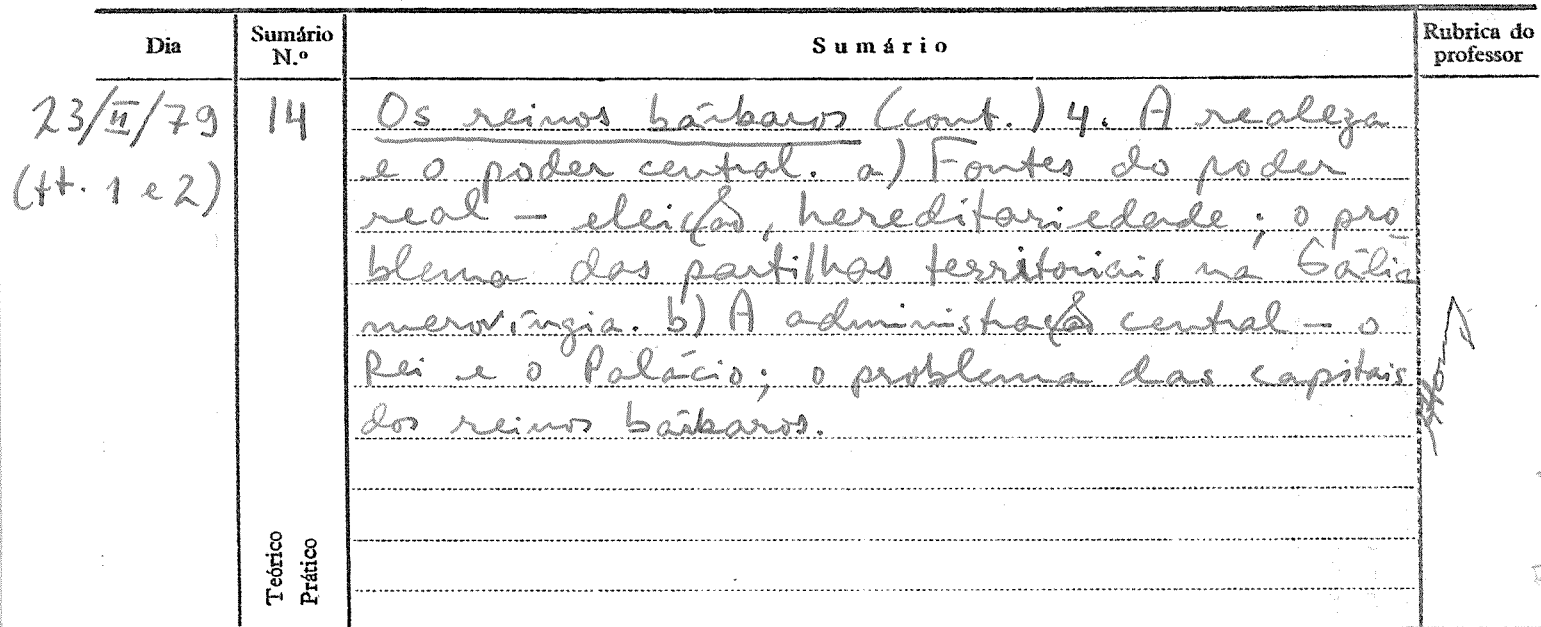 Dia Sumário N.º Sumário Rubrica do professor
23/II/79 14 Os reinos bárbaros (cont.) 4. A realeza
(tt. 1 e 2) e o poder central. a) Fontes do poder
real – eleição, hereditariedade; o pro
blema das partilhas territoriais na Gália
merovíngia. b) A administração central – o
Rei e o Palácio; o problema das capitais
dos reinos bárbaros.
Teórico
Prático